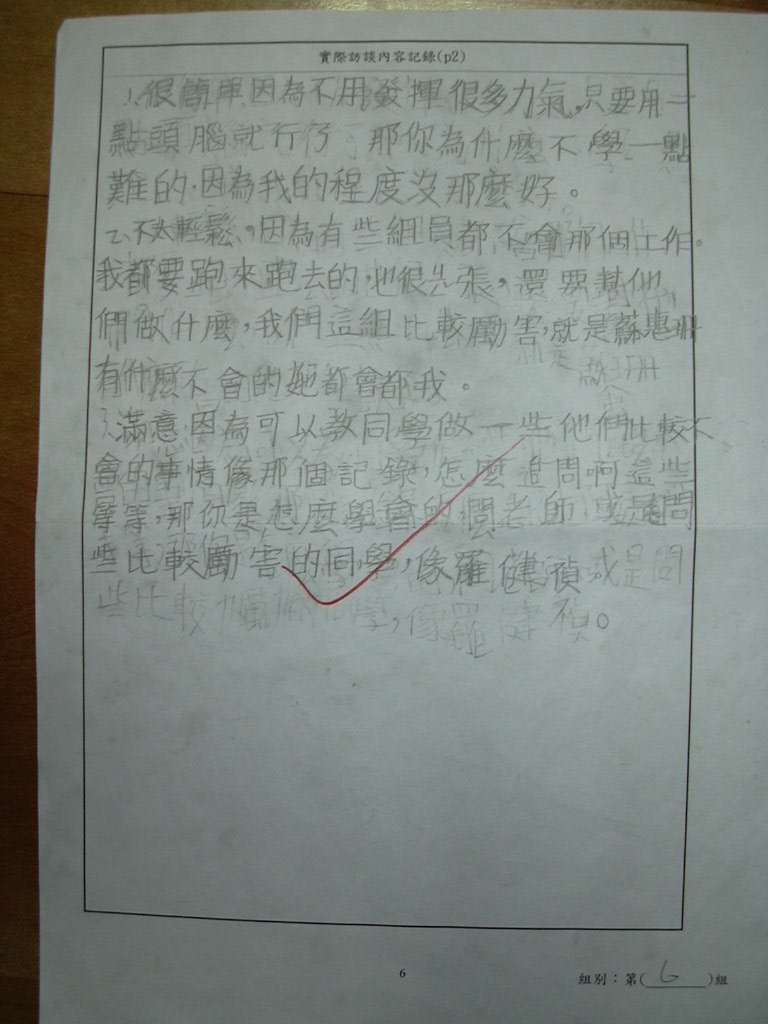 實際訪談內容記錄(p2)
1.很簡單因為不用發揮很多力氣,只要用一
點頭腦就行了。那你為什麼不學一點
難的.因為我的程度沒那麼好。
2.不太輕鬆,因為有些組員都不會那個工作。
我都要跑來跑去的,也很 張,還要幫他
們做什麼,我們這組比較厲害,就是蘇惠
有什麼不會的她都會都我。
3.滿意,因為可以教同學做一些他們比較不
會的事情像那個記錄,怎麼追問啊這些
等等,那你是怎麼學會的,問老師或是問
些比較厲害的同學,像羅健禎或是問
些比較 學,像羅健禎。
6
組別:第(6)組